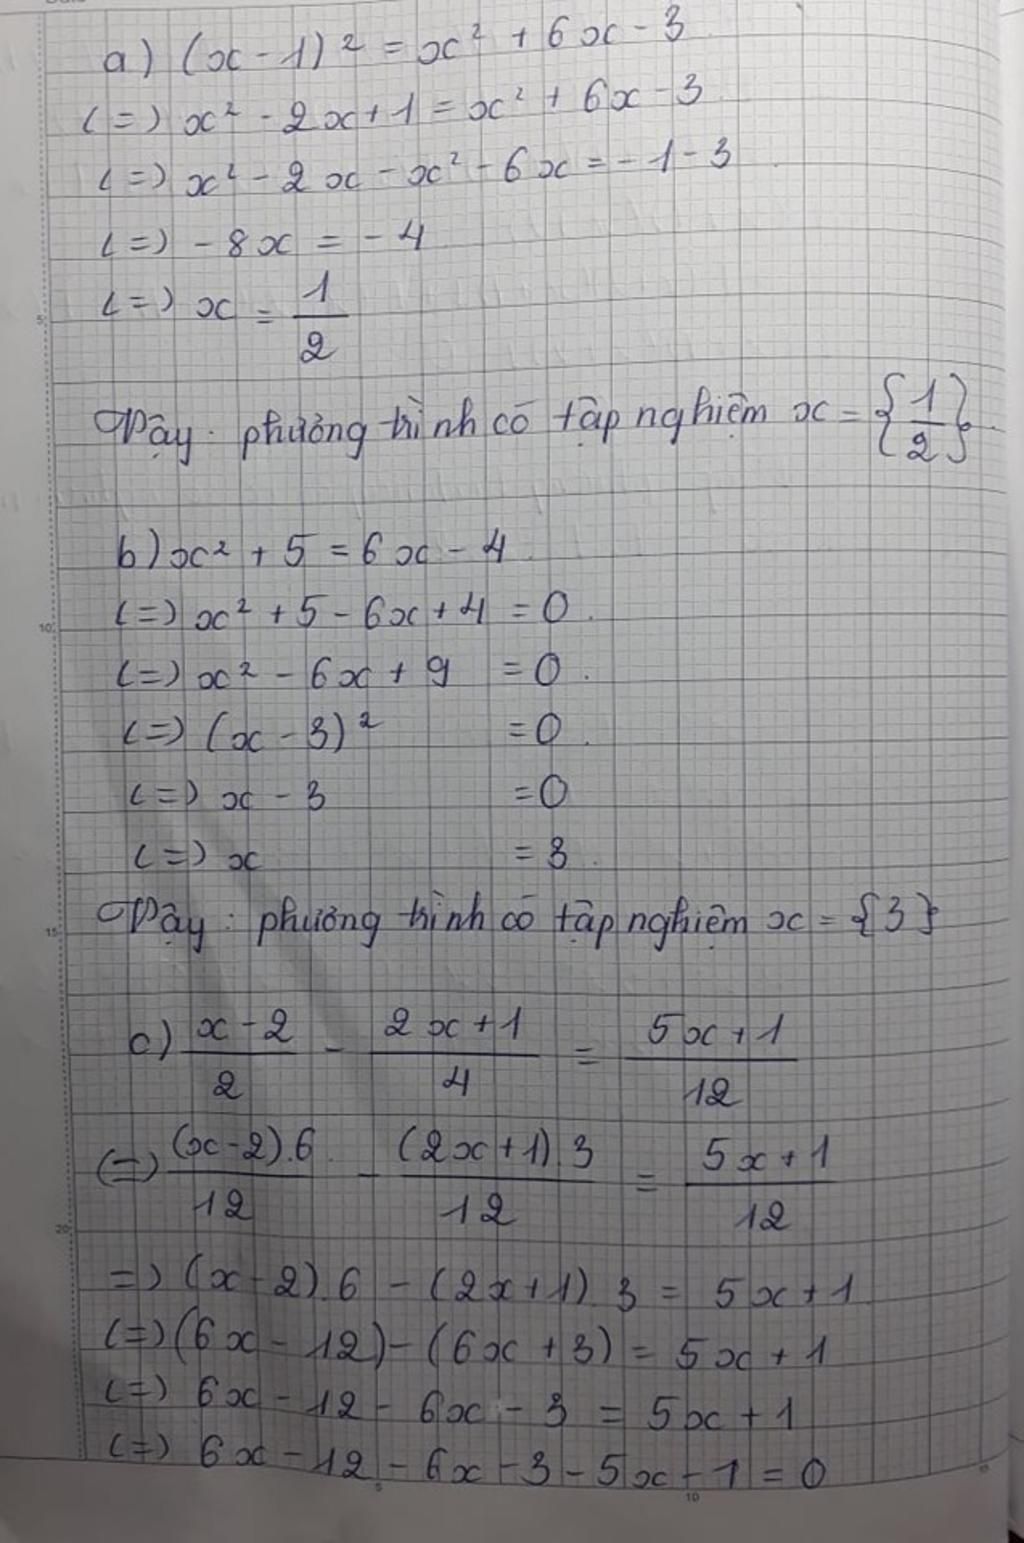 a) (x - 1)² = x² + 6x - 3
(=) x² - 2x + 1 = x² + 6x - 3
(=) x² - 2x - x² - 6x = - 1 - 3
(=) - 8x = - 4
(=) x = 1/2
Vậy : phương trình có tập nghiệm x = {1/2}.
b) x² + 5 = 6x - 4
(=) x² + 5 - 6x + 4 = 0.
(=) x² - 6x + 9 = 0.
(=) (x - 3)² = 0.
(=) x - 3 = 0
(=) x = 3.
Vậy : phương trình có tập nghiệm x = {3}
c) x - 2/2 - 2x + 1/4 = 5x + 1/12
(=) (x - 2).6/12 - (2x + 1).3/12 = 5x + 1/12
=) (x - 2).6 - (2x + 1).3 = 5x + 1
(=) (6x - 12) - (6x + 3) = 5x + 1
(=) 6x - 12 - 6x - 3 = 5x + 1
(=) 6x - 12 - 6x - 3 - 5x - 1 = 0